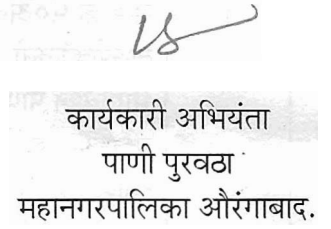 कार्यकारी अभियंता
पाणी पुरवठा
महानगरपालिका औरंगाबाद.